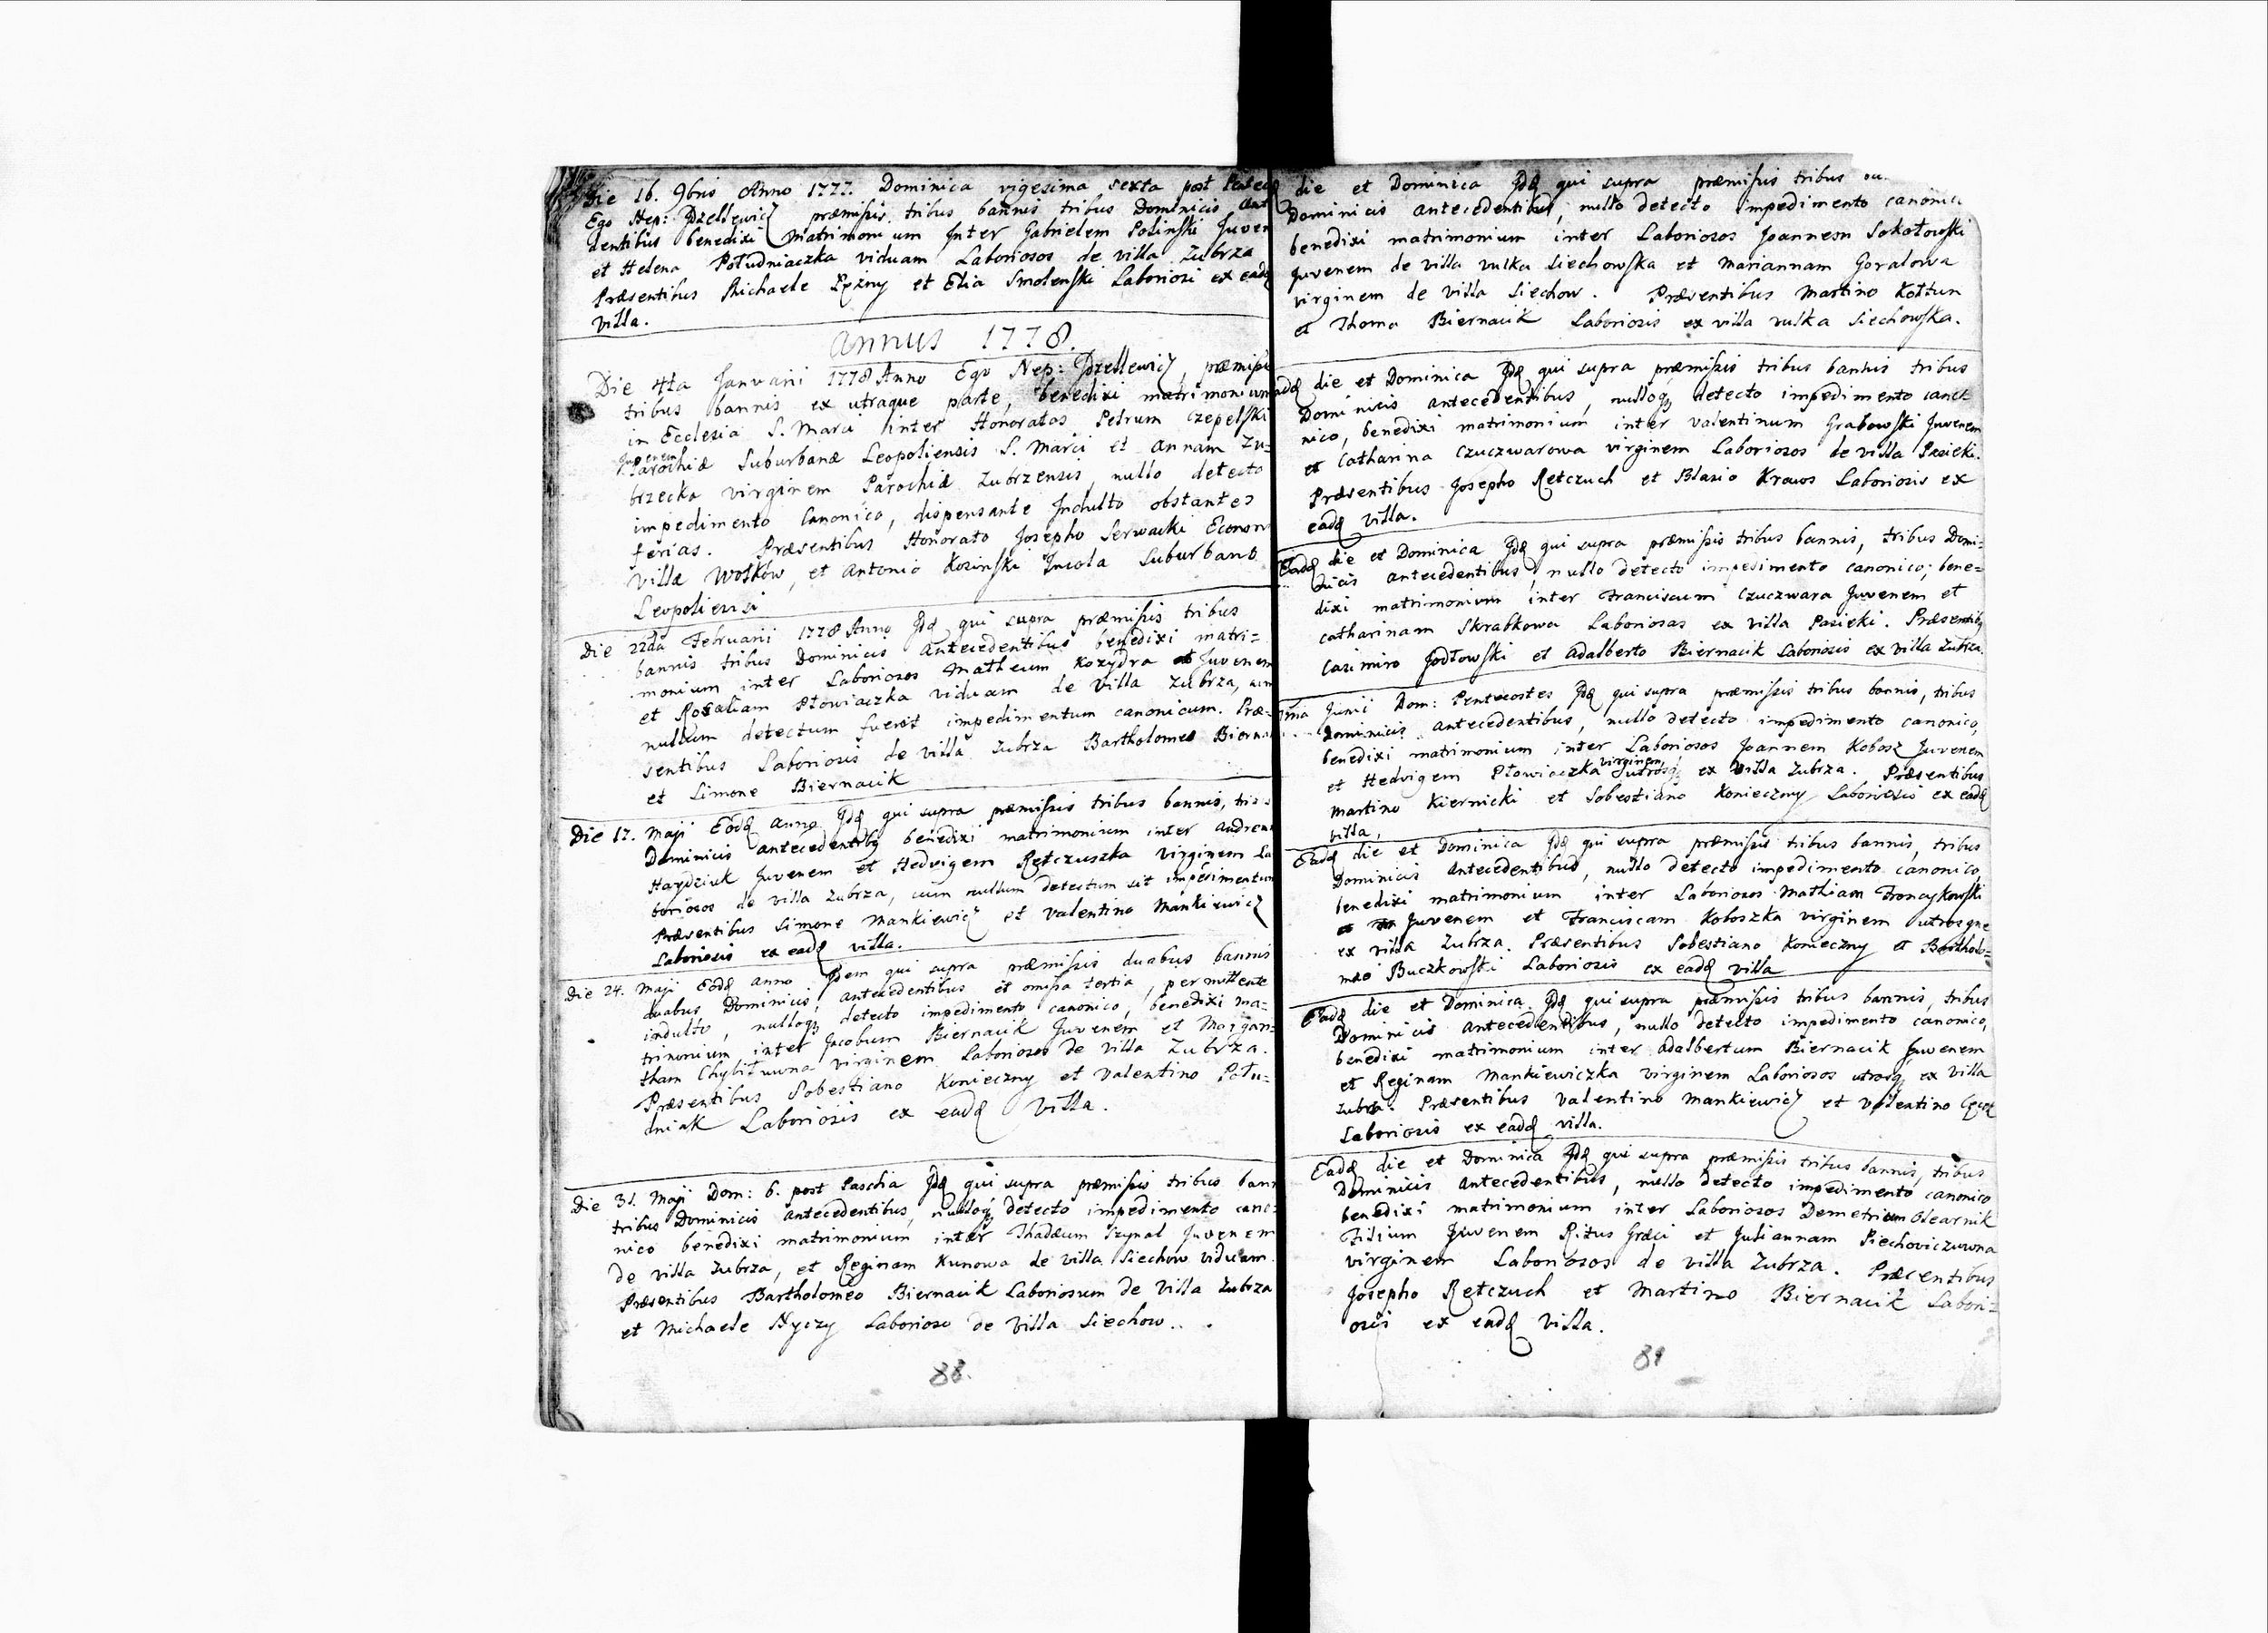 Die 16. 9bris Anno 1777. Dominica vigesima sexta post
Ego Nep: præmissis tribus bannis tribus Dominicis ante
dentibus benedixi Matrimonium Inter Gabrielem Posinski Juven
et Helena Południaczka viduam Laboriosos de villa Zubrza
Præsentibus Michaele et Elia Smolenski Laboriosi ex eadq
villa.
Annus 1778.
Die 4ta Januarii 1778 Anno Ego Nep: præmissis
tribus bannis ex utraque parte, benedixi matrimonium
in Ecclesia S. Marci inter Honoratos Petrum Czepelski
Juvenem
Parochiæ Suburbanæ Leopoliensis S. Marci et Annam Zu=
brzecka virginem Parochiæ Zubrzensis, nullo detecto
impedimento Canonico, dispensante Indulto obstantes
ferias. Præsentibus Honorato Josepho Serwacki Econom
villæ Wołków, et Antonio Kosinski Incola Suburbano
Leopoliensi
Die 22da Februarii 1778 Anno Idq qui supra præmissis tribus
bannis tribus Dominicis Antecedentibus benedixi matri=
monium inter Laboriosos Matheum Kozydra Juvenem
et Rosaliam Płowiaczka viduam de villa Zubrza, cum
nullum detectum fuerit impedimentum canonicum. Præ=
sentibus Laboriosis de villa Zubrza Bartholomeo Biernac
et Simone Biernacik
Die 17. Maji Eodq anno Idq qui supra præmissis tribus bannis, tribus
Dominicis antecedentibq benedixi matrimonium inter Andream
Haydziuk Juvenem et Hedvigem Rętczuszka Virginem La
boriosos de villa Zubrza, cum nullum detectum sit impedimentum
Præsentibus Simone Mankiewicz et Valentino Mankiewicz
Laboriosis ex eadq villa.
Die 24. Maji Eodq anno Idem qui supra præmissis duabus bannis
duabus Dominicis, antecedentibus et omissa tertia, permittente
indulto, nulloq detecto impedimento canonico, benedixi ma=
trimonium inter Jacobum Biernacik Juvenem et Margare=
tham virginem Laboriosos de villa Zubrza.
Præsentibus Sobestiano Konieczny et Valentino Połu=
dniak Laboriosis ex eadq villa.
Die 31. Maji Dom: 6. post Pascha Idq qui supra præmissis tribus bann
tribus Dominicis antecedentibus, nulloq detecto impedimento cano=
nico benedixi matrimonium inter Thadæum Juvenem
de villa Zubrza, et Reginam Kunowa de villa Siechow viduam
Præsentibus Bartholomeo Biernacik Laboriosum de villa Zubrza
et Michaele Laborioso de villa Siechow.
88.
die et Dominica Idq qui supra præmissis tribus
Dominicis antecedentibus, nullo detecto impedimento canonic
benedixi matrimonium inter Laboriosos Joannem Sokołowski
Juvenem de villa vulka Siechowska et Mariannam Goralowa
virginem de villa Siechow. Præsentibus Martino Kołtun
et Thoma Biernacik Laboriosis ex villa vulka Siechowska.
eadq die et Dominica Idq qui supra præmissis tribus bannis tribus
Dominicis antecedentibus, nulloq detecto impedimento cano=
nico, benedixi matrimonium inter Valentinum Grabowski Juvenem
et Catharina Czuczwarowa virginem Laboriosos de villa Pasieki.
Præsentibus Josepho Rętczuch et Blasio Krawos Laboriosis ex
eadq villa.
Eadq die et Dominica Idq qui supra præmissis tribus bannis, tribus Domi=
nicis antecedentibus, nullo detecto impedimento canonico; bene=
dixi matrimonium inter Franciscum Czuczwara Juvenem et
Catharinam Skrabkowa Laboriosas ex villa Pasieki. Præsentibq
Casimiro Jodłowski et Adalberto Biernacik Laboriosis ex villa Zubrza.
7ma Junii Dom: Pentecostes Idq qui supra præmissis tribus bannis, tribus
Dominicis antecedentibus, nullo detecto impedimento canonico,
benedixi matrimonium inter Laboriosos Joannem Kobosz Juvenem
virginem
et Hedvigem Płowiaczka utrosq ex villa Zubrza. Præsentibus
Martino Kiernicki et Sobestiano Konieczny Laboriosis ex eadq
villa,
Eadq die et Dominica Idq qui supra præmissis tribus bannis, tribus
Dominicis Antecedentibus, nullo detecto impedimento canonico,
benedixi matrimonium inter Laboriosos Mathiam
Juvenem et Franciscam Koboszka virginem utrosque
ex villa Zubrza. Præsentibus Sobestiano Konieczny et Bartholo=
mæo Buczkowski Laboriosis ex eadq villa
Eadq die et Dominica Idq qui supra præmissis tribus bannis, tribus
Dominicis antecedentibus, nullo detecto impedimento canonico,
benedixi matrimonium inter Adalbertum Biernacik Juvenem
et Reginam Mankiewiczka virginem Laboriosos utrosq ex villa
Zubrza. Præsentibus Valentino Mankiewicz et Valentino
Laboriosis ex eadq villa.
Eadq die et Dominica Idq qui supra præmissis tribus bannis, tribus
Dominicis Antecedentibus, nullo detecto impedimento canonico
benedixi matrimonium inter Laboriosos Demetrium Olearnik
Filium Juvenem Ritus Græci et Juliannam Siechoviczuwna
virginem Laboriosos de villa Zubrza. Præsentibus
Josepho Rętczuch et Martino Biernacik Labori=
osis ex eadq villa.
89